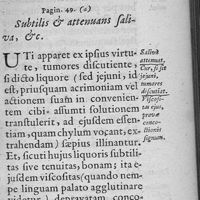 Pagin. 49. (a)
Subtilis & attenuans sali-
va, &c.
UTi apparet ex ipsus virtu-
te, tumores discutiente,
si dicto liquore (sed jejuni, id
est, præter acrimoniam vel
actionem suam in convenien-
tem cibi assumti dissolutio-
nem, quam amphibiam vocant, ex-
trahendam) sæpius illinantur.
Et, sicuti hujus liquoris subtili-
tas sive tenuitas, bonam; ita e-
jusdem viscositas (quando nem-
pe linguam palato agglutinare
videtur) depravatam conco-
Saliva
attenuat,
Cur, si sit
jejuni,
tumores
discutiat.
Viscosi-
jus,
pravæ
conco-
ctionis
signum.